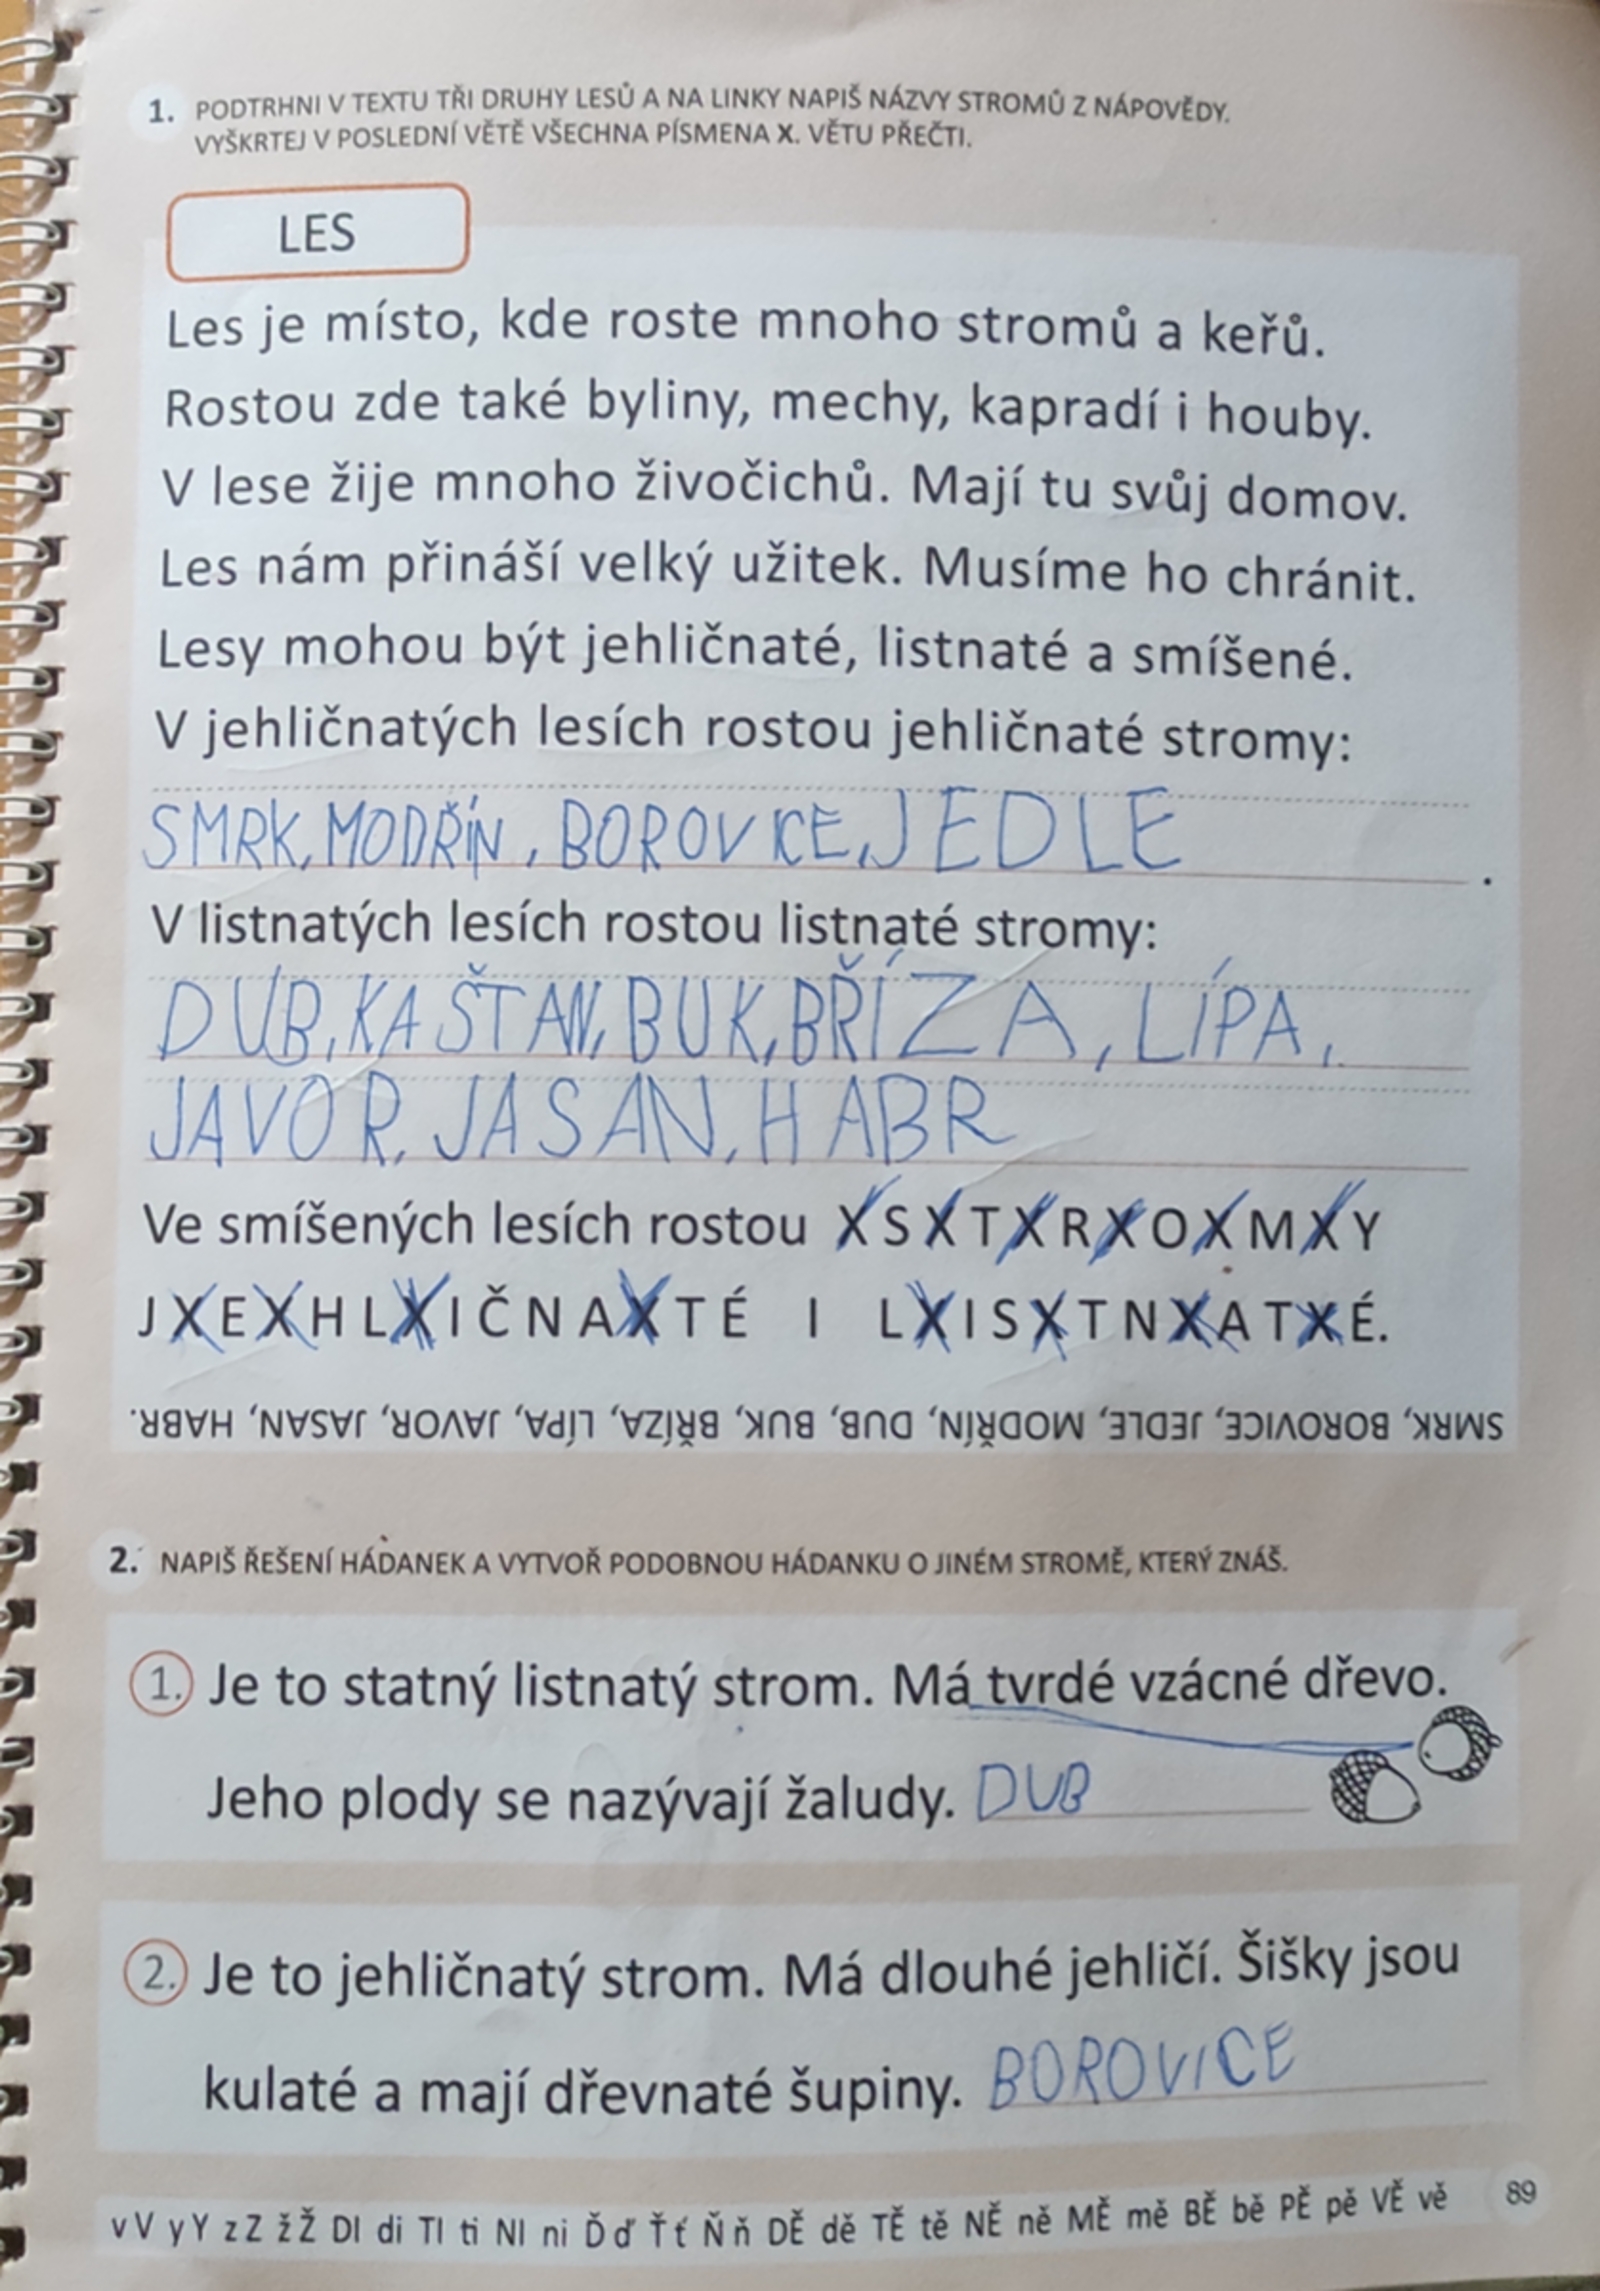 1. PODTRHNI V TEXTU TŘI DRUHY LESŮ A NA LINKY NAPIŠ NÁZVY STROMŮ Z NÁPOVĚDY.
VYŠKRTEJ V POSLEDNÍ VĚTĚ VŠECHNA PÍSMENA X. VĚTU PŘEČTI.
LES
Les je místo, kde roste mnoho stromů a keřů.
Rostou zde také byliny, mechy, kapradí i houby.
V lese žije mnoho živočichů. Mají tu svůj domov.
Les nám přináší velký užitek. Musíme ho chránit.
Lesy mohou být jehličnaté, listnaté a smíšené.
V jehličnatých lesích rostou jehličnaté stromy:
SMRK, MODŘÍN, BOROVICE, JEDLE .
V listnatých lesích rostou listnaté stromy:
DUB, KAŠTAN, BUK, BŘÍZA, LÍPA,
JAVOR, JASAN, HABR
Ve smíšených lesích rostou X S X T X R X O X M X Y
J X E X H L X I Č N A X T É I L X I S X T N X A T X É.
SMRK, BOROVICE, JEDLE, MODŘÍN, DUB, BUK, BŘÍZA, LÍPA, JAVOR, JASAN, HABR.
2. NAPIŠ ŘEŠENÍ HÁDANEK A VYTVOŘ PODOBNOU HÁDANKU O JINÉM STROMĚ, KTERÝ ZNÁŠ.
1. Je to statný listnatý strom. Má tvrdé vzácné dřevo.
Jeho plody se nazývají žaludy. DUB
2. Je to jehličnatý strom. Má dlouhé jehličí. Šišky jsou
kulaté a mají dřevnaté šupiny. BOROVICE
v V y Y z Z ž Ž DI di TI ti NI ni Ď ď Ť ť Ň ň DĚ dě TĚ tě NĚ ně MĚ mě BĚ bě PĚ pě VĚ vě 89